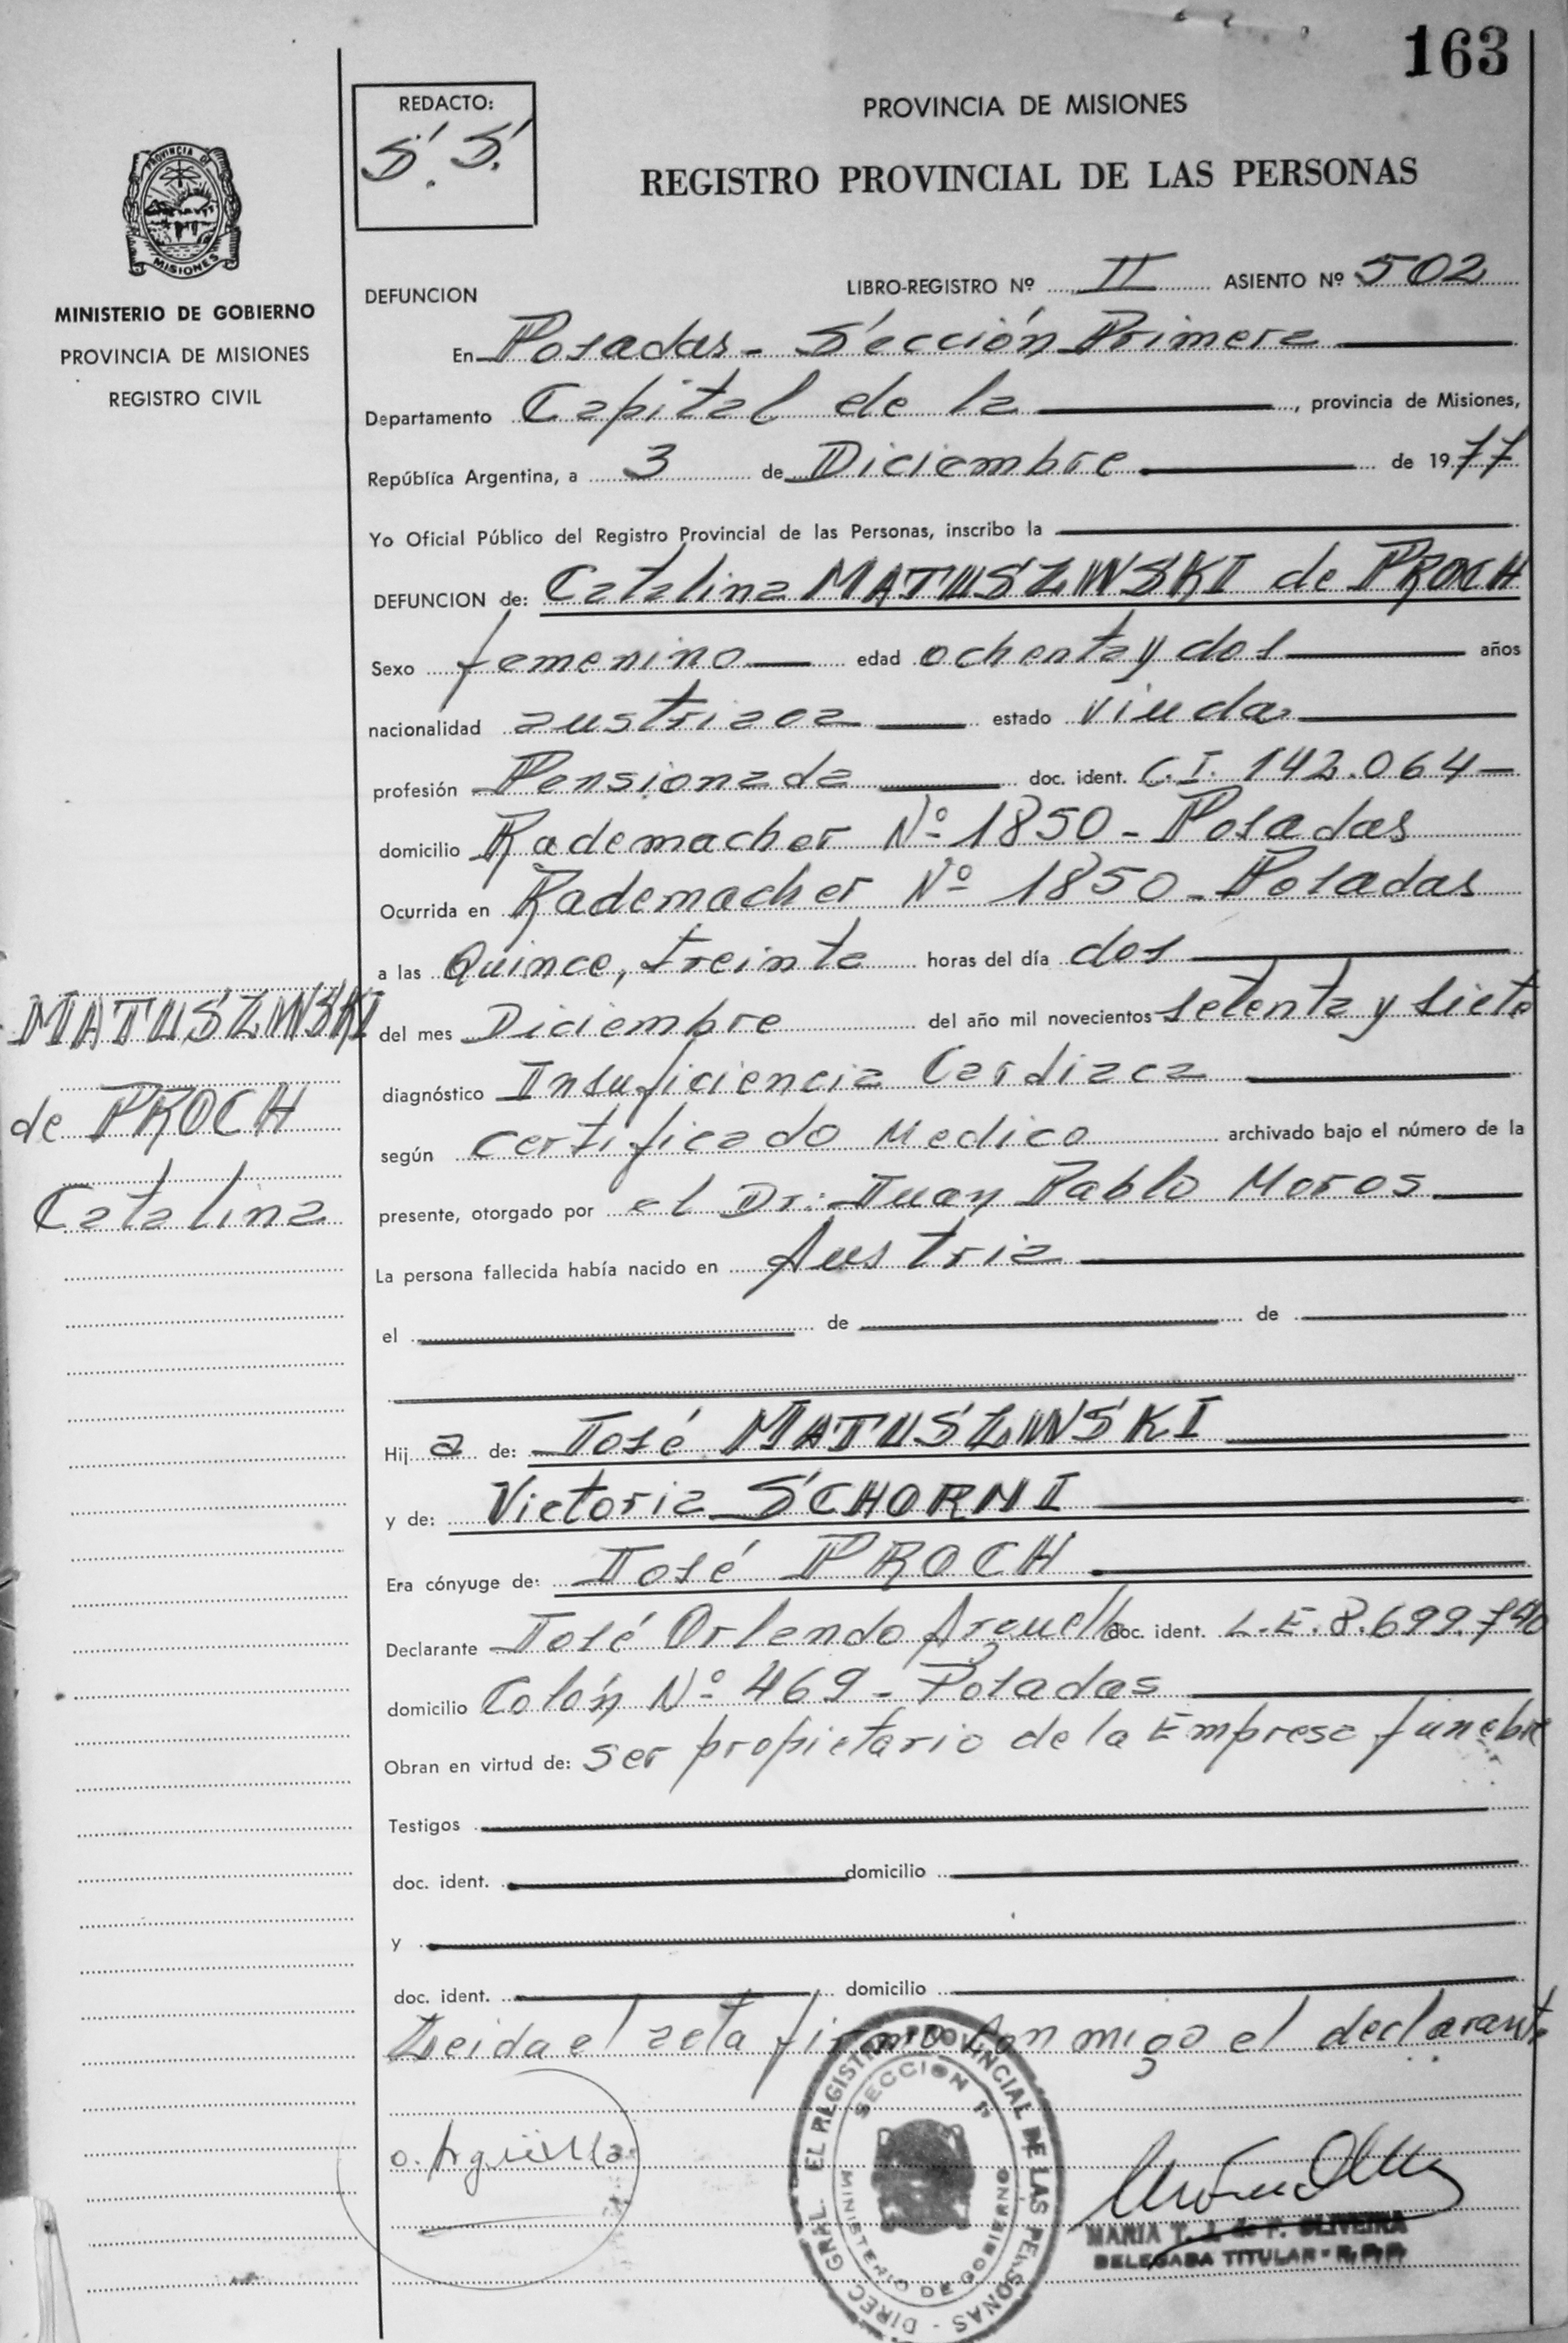 163
REDACTO:
S. S.
PROVINCIA DE MISIONES
REGISTRO PROVINCIAL DE LAS PERSONAS
PROVINCIA DE
MISIONES
MINISTERIO DE GOBIERNO
PROVINCIA DE MISIONES
REGISTRO CIVIL
DEFUNCION
LIBRO-REGISTRO Nº II ASIENTO Nº 502
En Posadas - Sección Primera
Departamento Capital de la, provincia de Misiones,
República Argentina, a 3 de Diciembre de 1977
Yo Oficial Público del Registro Provincial de las Personas, inscribo la
DEFUNCION de: Catalina MATUSZWSKI de PROCH
Sexo femenino edad ochenta y dos años
nacionalidad austriaca estado viuda
profesión Pensionada doc. ident. C.I. 142.064
domicilio Rademacher Nº 1850 - Posadas
Ocurrida en Rademacher Nº 1850 - Posadas
a las Quince, treinta horas del día dos
del mes Diciembre del año mil novecientos setenta y siete
diagnóstico Insuficiencia Cardiaca
según certificado Medico archivado bajo el número de la
presente, otorgado por el Dr: Juan Pablo Moros
La persona fallecida había nacido en Austria
el de de
Hija de: José MATUSZWSKI
y de: Victoria SCHORNI
Era cónyuge de: José PROCH
Declarante José Orlando Arguello doc. ident. L.E. 8.699.740
domicilio Colón Nº 469 - Posadas
Obran en virtud de: ser propietario de la Empresa fúnebre
Testigos
doc. ident. domicilio
y
doc. ident. domicilio
Leida el acta firmo conmigo el declarante
MATUSZWSKI
de PROCH
Catalina
O. Argüello
DIREC. GRAL. EL REGISTRO PROVINCIAL DE LAS PERSONAS -
SECCION 1ª
MINISTERIO DE GOBIERNO
MARIA T. J. de P. OLIVEIRA
DELEGADA TITULAR - R. P. P.